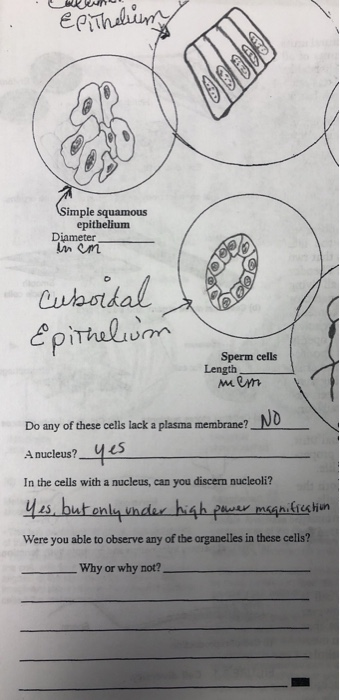 Epithelium
Simple squamous
epithelium
Diameter
in cm
Cuboidal
Epithelium
Sperm cells
Length
in cm
Do any of these cells lack a plasma membrane? NO
A nucleus? yes
In the cells with a nucleus, can you discern nucleoli?
Yes, but only under high power magnification
Were you able to observe any of the organelles in these cells?
Why or why not?